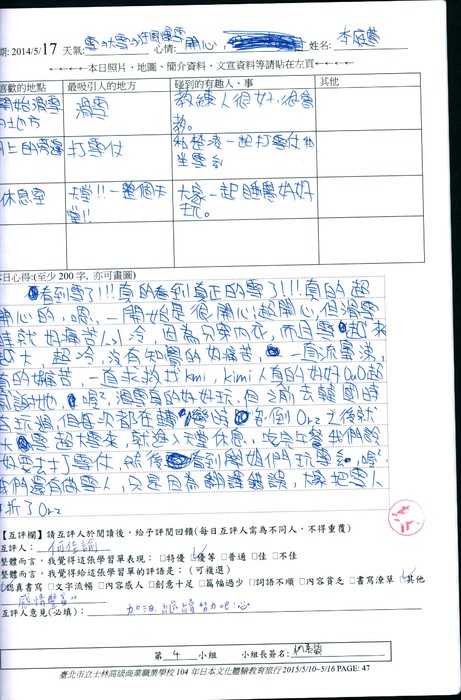 期: 2014/5/17 天氣: 雪→大雪→狂風爆雪 心情: 開心 姓名: 李庭萱
←←←←本日照片、地圖、簡介資料、文宣資料等請貼在左頁←←←←
喜歡的地點 最吸引人的地方 碰到的有趣人、事 其他
開始滑雪 滑雪 教練人很好,很會
的地方 教。
上的旁邊 打雪仗 一起打雪仗和
坐雪
休息室 天堂!!一整個天 大家一起睡覺好好
堂!! 玩。
本日心得:(至少 200 字, 亦可畫圖)
看到雪了!!!真的看到真正的雪了!!!真的超
開心的,嗯,一開始是很開心超開心,但滑雪
就好痛苦,冷,因為只穿內衣,而且雪越來
越大,超冷,沒有知覺的好痛苦,一直流鼻涕,
真的好痛苦,一直求救找kimi,kimi人真的好好OuO超
感謝她,嗯,滑雪真的好好玩,但之前去韓國時
有玩過,但每次都在轉彎時容倒Orz之後就
雪超大起來,就進入天堂休息,吃完午餐我們說
好要去打雪仗,然後看到開始們玩雪,喔
我們還有做雪人,只是因為翻譯錯誤,大家把雪人
拆了Orz
【互評欄】請互評人於閱讀後,給予評閱回饋(每日互評人需為不同人,不得重覆)
互評人: 何佳諭
整體而言,我覺得這張學習單表現:□特優 ☑優等 □普通 □佳 □不佳
整體而言,我覺得給這張學習單的評語是:(可複選)
認真書寫 □文字流暢 □內容感人 □創意十足 □篇幅過少 □詞語不順 □內容貧乏 □書寫潦草 ☑其他
感情豐富
互評人意見(必填): 加油,繼續努力吧:)
第 4 小組 小組長簽名:
臺北市立士林高級商業職業學校 104 年日本文化體驗教育旅行 2015/5/10~5/16 PAGE: 47